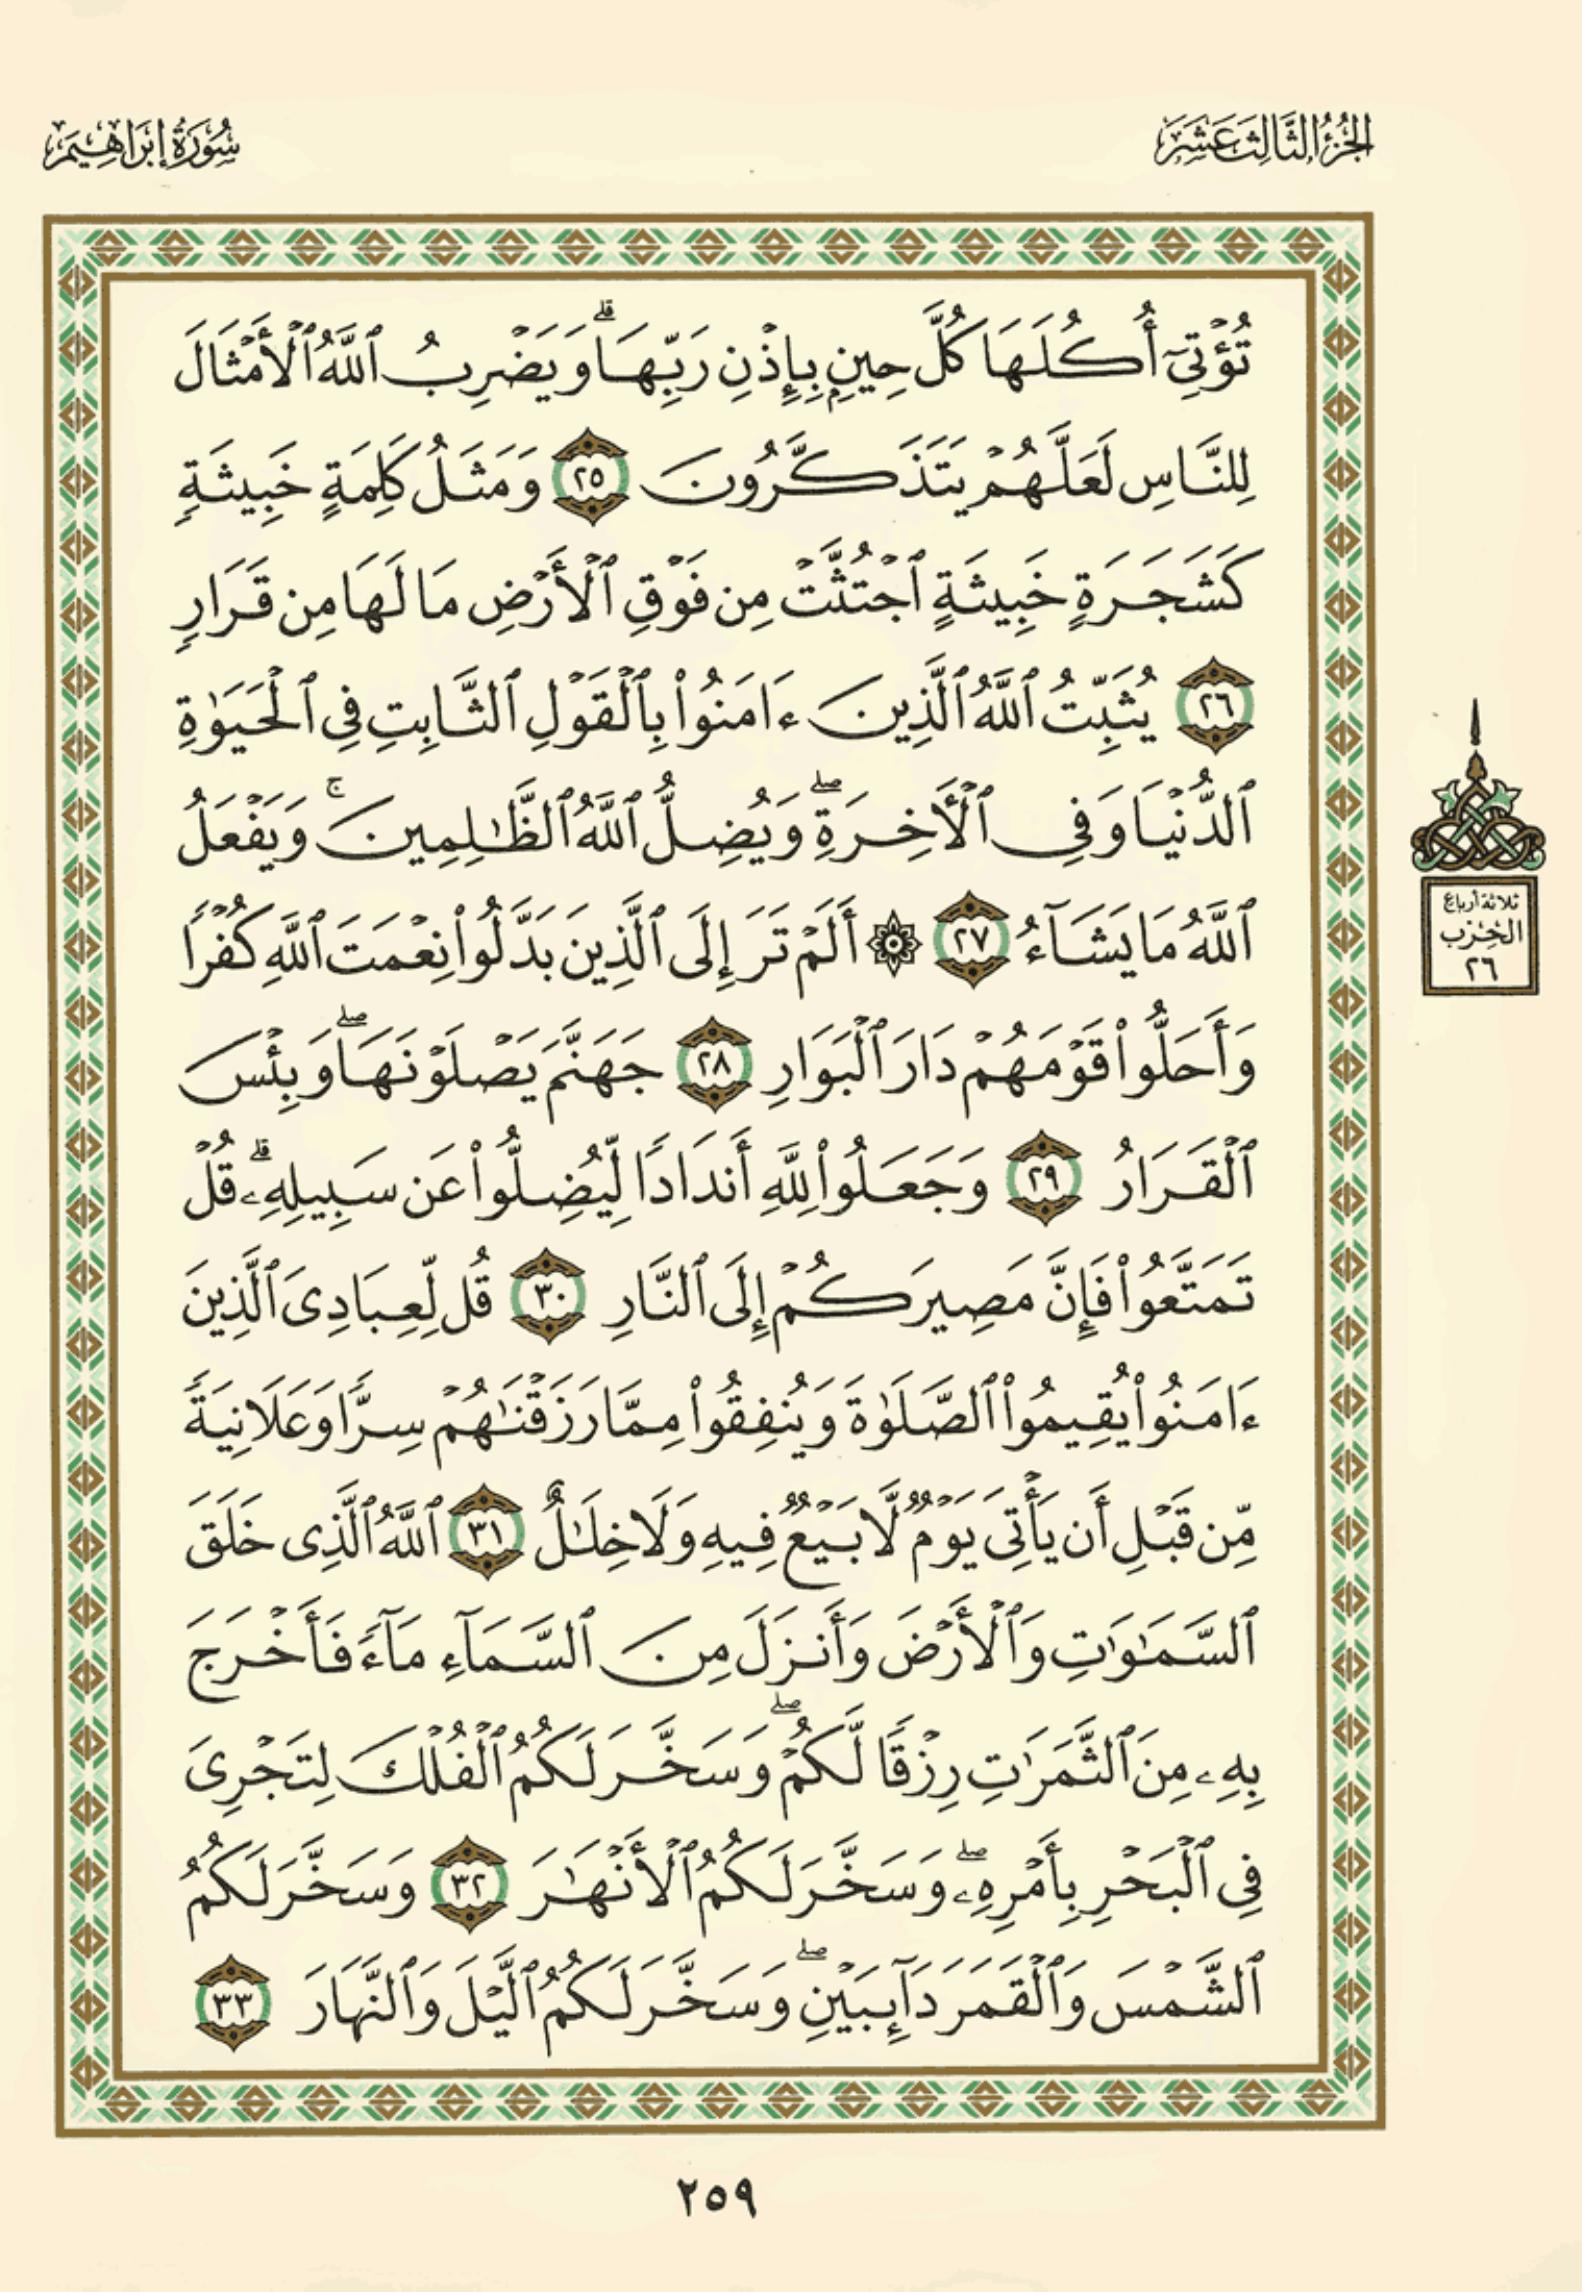 الجُزْءُ الثَّالِثَ عَشَرَ
سُورَةُ إِبْرَاهِيمَ
تُؤْتِيٓ أُكُلَهَا كُلَّ حِينِۭ بِإِذْنِ رَبِّهَاۗ وَيَضْرِبُ ٱللَّهُ ٱلْأَمْثَالَ
لِلنَّاسِ لَعَلَّهُمْ يَتَذَكَّرُونَ ٢٥ وَمَثَلُ كَلِمَةٍ خَبِيثَةٍ
كَشَجَرَةٍ خَبِيثَةٍ ٱجْتُثَّتْ مِن فَوْقِ ٱلْأَرْضِ مَا لَهَا مِن قَرَارٍ
٢٦ يُثَبِّتُ ٱللَّهُ ٱلَّذِينَ ءَامَنُوا۟ بِٱلْقَوْلِ ٱلثَّابِتِ فِى ٱلْحَيَوٰةِ
ٱلدُّنْيَا وَفِى ٱلْأَخِرَةِۖ وَيُضِلُّ ٱللَّهُ ٱلظَّٰلِمِينَۚ وَيَفْعَلُ
ٱللَّهُ مَا يَشَآءُ ٢٧ ۞ أَلَمْ تَرَ إِلَى ٱلَّذِينَ بَدَّلُوا۟ نِعْمَتَ ٱللَّهِ كُفْرًا
وَأَحَلُّوا۟ قَوْمَهُمْ دَارَ ٱلْبَوَارِ ٢٨ جَهَنَّمَ يَصْلَوْنَهَاۖ وَبِئْسَ
ٱلْقَرَارُ ٢٩ وَجَعَلُوا۟ لِلَّهِ أَندَادًا لِّيُضِلُّوا۟ عَن سَبِيلِهِۦۗ قُلْ
تَمَتَّعُوا۟ فَإِنَّ مَصِيرَكُمْ إِلَى ٱلنَّارِ ٣٠ قُل لِّعِبَادِىَ ٱلَّذِينَ
ءَامَنُوا۟ يُقِيمُوا۟ ٱلصَّلَوٰةَ وَيُنفِقُوا۟ مِمَّا رَزَقْنَٰهُمْ سِرًّا وَعَلَانِيَةً
مِّن قَبْلِ أَن يَأْتِىَ يَوْمٌ لَّا بَيْعٌ فِيهِ وَلَا خِلَٰلٌ ٣١ ٱللَّهُ ٱلَّذِى خَلَقَ
ٱلسَّمَٰوَٰتِ وَٱلْأَرْضَ وَأَنزَلَ مِنَ ٱلسَّمَآءِ مَآءً فَأَخْرَجَ
بِهِۦ مِنَ ٱلثَّمَرَٰتِ رِزْقًا لَّكُمْۖ وَسَخَّرَ لَكُمُ ٱلْفُلْكَ لِتَجْرِىَ
فِى ٱلْبَحْرِ بِأَمْرِهِۦۖ وَسَخَّرَ لَكُمُ ٱلْأَنْهَٰرَ ٣٢ وَسَخَّرَ لَكُمُ
ٱلشَّمْسَ وَٱلْقَمَرَ دَآئِبَيْنِۖ وَسَخَّرَ لَكُمُ ٱلَّيْلَ وَٱلنَّهَارَ ٣٣
ثلاثة أرباع
الحِزب
٢٦
٢٥٩